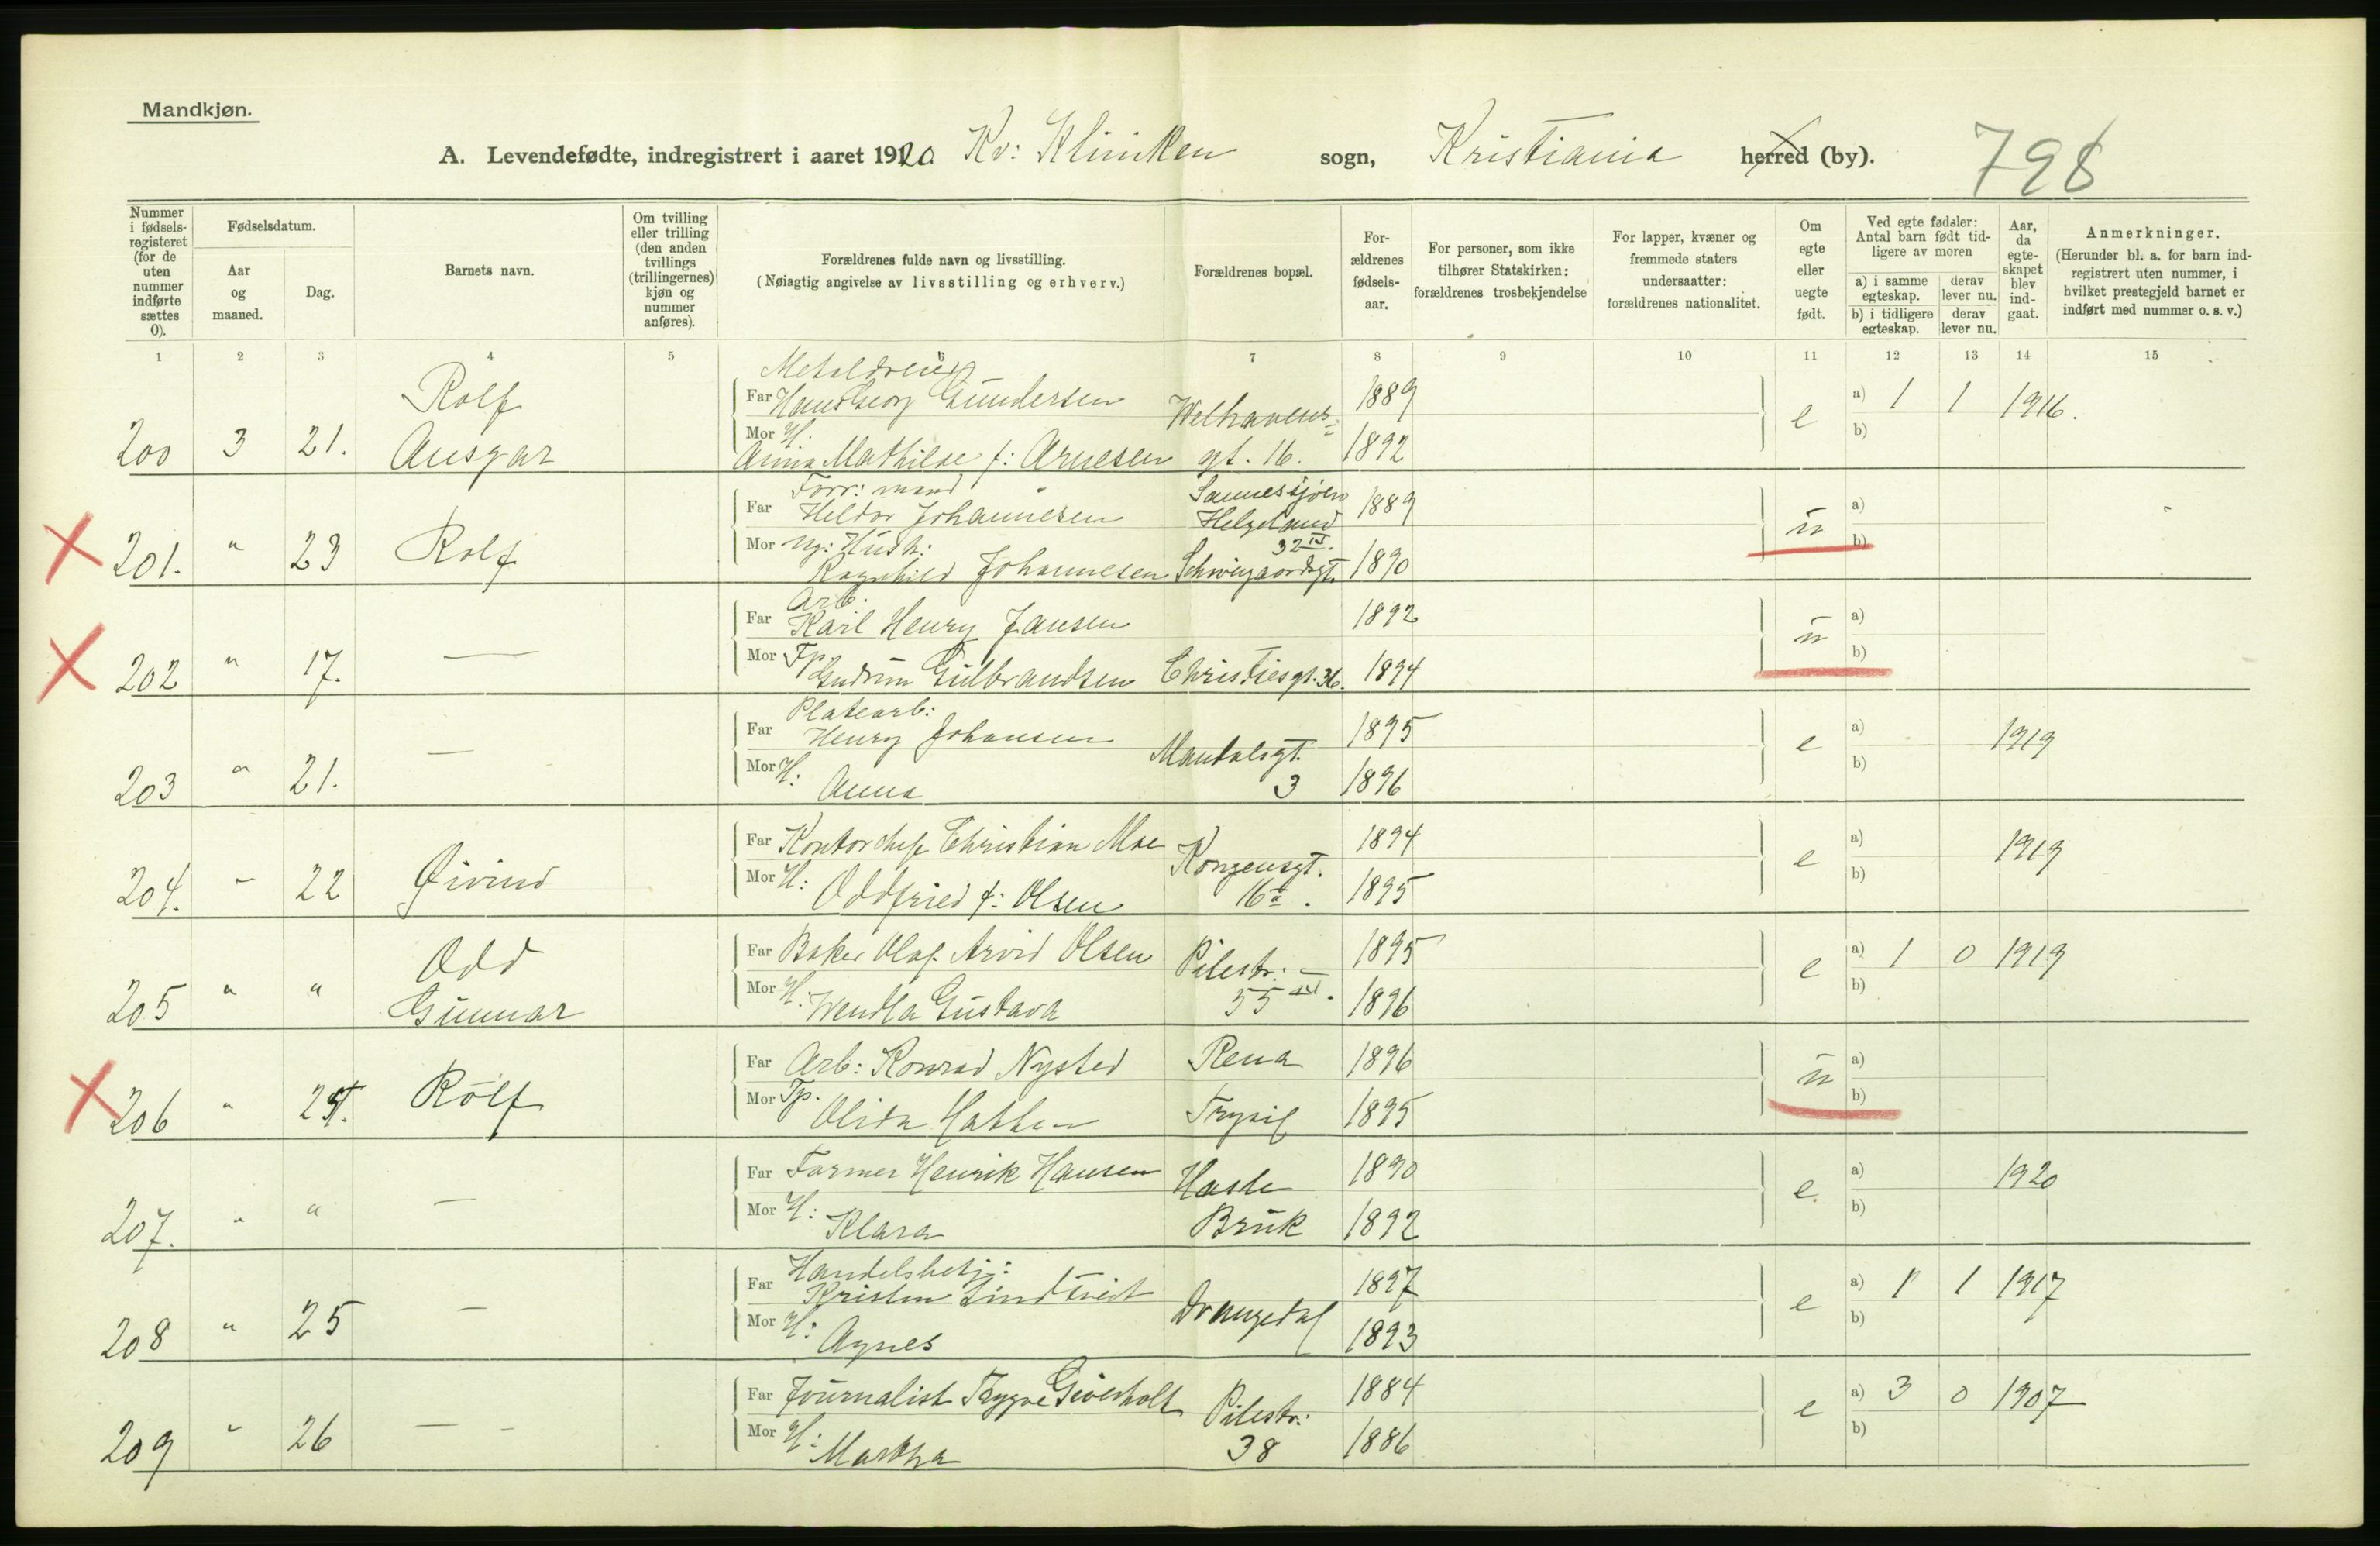 Mandkjøn.
A. Levendefødte, indregistrert i aaret 1920. Kv: Kliniken sogn, Kristiania herred (by). 798
Nummer i fødsels-registeret (for de uten nummer indførte sættes 0).
Fødselsdatum.
Aar og maaned.
Dag.
Barnets navn.
Om tvilling eller trilling (den anden tvillings (trillingernes) kjøn og nummer anføres).
Forældrenes fulde navn og livsstilling.
(Nøiagtig angivelse av livsstilling og erhverv.)
Forældrenes bopæl.
For-ældrenes fødsels-aar.
For personer, som ikke tilhører Statskirken: forældrenes trosbekjendelse
For lapper, kvæner og fremmede staters undersaatter: forældrenes nationalitet.
Om egte eller uegte født.
Ved egte fødsler: Antal barn født tid-ligere av moren
a) i samme egteskap. derav lever nu.
b) i tidligere egteskap. derav lever nu.
Aar, da egte-skapet blev ind-gaat.
Anmerkninger.
(Herunder bl. a. for barn ind-registrert uten nummer, i hvilket prestegjeld barnet er indført med nummer o. s. v.)
1 2 3 4 5 6 7 8 9 10 11 12 13 14 15
Metaldreier
Rolf Far Hans Georg Gundersen Welhavens= 1889 e a) 1 1 1916.
200 3 21. Ansgar Mor H: Anna Mathilde f: Arnesen gt. 16. 1892 b)
Forr: mand Sannessjøen
Far Heldor Johannesen Helgeland 1889 u a)
201. " 23 Rolf Mor Ug: Hush: Ragnhild Johannesen 32 IV. Schweigaardsgt. 1890 b)
Arb.
Far Karl Henry Jansen 1892 u a)
202 " 17. — Mor Tp Gudrun Gulbrandsen Christiesgt. 36. 1894 b)
Platearb:
Far Henry Johansen Mandalsgt. 1895 e a) 1919
203 " 21. — Mor H: Anna 3 1896 b)
Far Kontorchef Christian Moe Kongensgt. 1894 e a) 1919
204. " 22 Øivind Mor H: Oddfried f: Olsen 16 . 1895 b)
Odd Far Baker Olaf Arvid Olsen Pilestr: 1895 e a) 1 0 1919
205 " " Gunnar Mor H: Wendla Gustava 55 III. 1896 b)
Far Arb: Konrad Nysted Rena 1896 u a)
206 " 24. Rolf Mor Tp. Olida Trysil 1895 b)
Far Farmer Henrik Hansen Hasle 1890 e. a) 1920
207. " " — Mor H: Klara Bruk 1892 b)
Handelsbetj:
Far Kristen Lindtveit Drangedal 1897 e a) 1 1 1917
208 " 25 — Mor H: Agnes 1893 b)
Far Journalist Trygve Geverholt Pilestr: 1884 e a) 3 0 1907
209 " 26 — Mor H: Martha 38 1886 b)